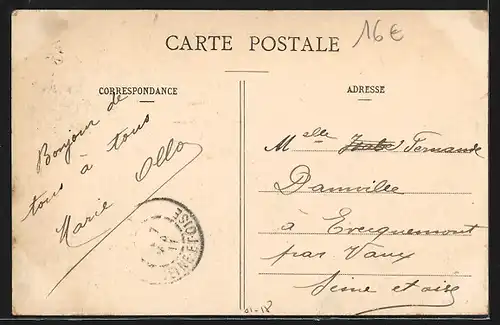 16€
CARTE POSTALE
CORRESPONDANCE
Bonjour de
tous à tous
Marie Ollo
ADRESSE
Melle Fernande
Damville
à Evecquemont
par Vaux
Seine et oise
SEINE-ET-OISE
01-18